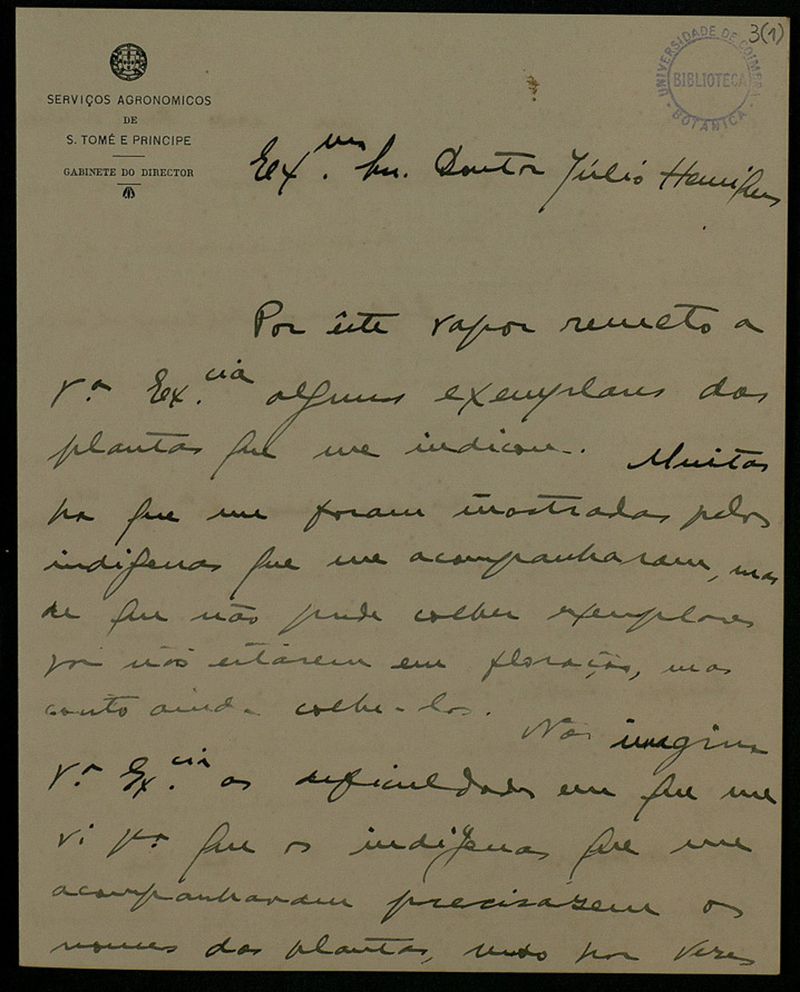 3(1)
UNIVERSIDADE DE COIMBRA
BIBLIOTECA
BOTÂNICA
SERVIÇOS AGRONOMICOS
DE
S. TOMÉ E PRINCIPE
GABINETE DO DIRECTOR
Ex.mo Snr. Doutor Júlio Henriques
Por êste vapor remeto a
V.a Ex.cia alguns exemplares das
plantas que me indicou. Muitas
ha que me foram mostradas pelos
indigenas que me acompanharam, mas
de que não pude colher exemplares
por não estarem em floração, mas
conto ainda colhe-los.
Não imagina
V.a Ex.cia as dificuldades em que me
vi pra que os indigenas que me
acompanhavam precisassem os
nomes das plantas, vendo por vezes